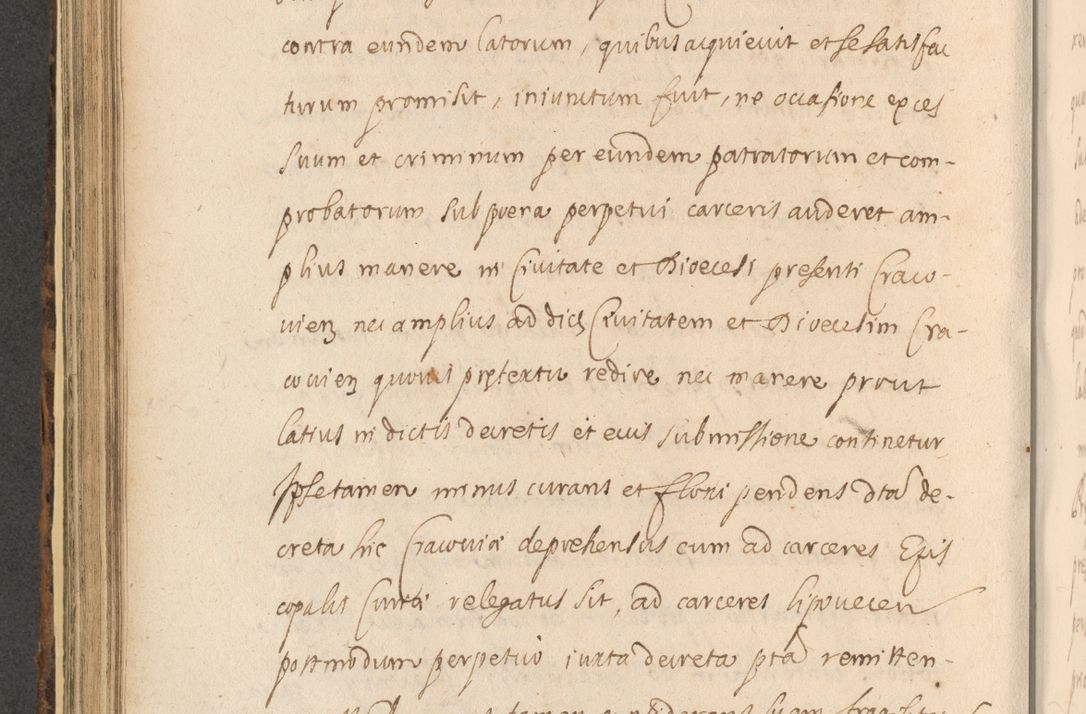 contra eundem latorum, quibus acquievit et se satisfac
turum promisit, iniunctum fuit, ne occasione exces
suum et criminum per eundem patratorum et com-
probatorum sub poena perpetui carceris auderet am-
plius manere in Civitate et Dioecesi presenti Craco-
vien nec amplius ad dict Civitatem et Dioecesim Cra-
covien quovis pretextu redire nec manere prout
latius in dictis decretis et eius submissione continetur
Ipse tamen minus curans et floci pendens dta de-
creta hic Cracoviæ deprehensus cum ad carceres Epis
copalis Curiæ relegatus sit, ad carceres Lipovecen
postmodum perpetuo iuxta decreta pta remitten-